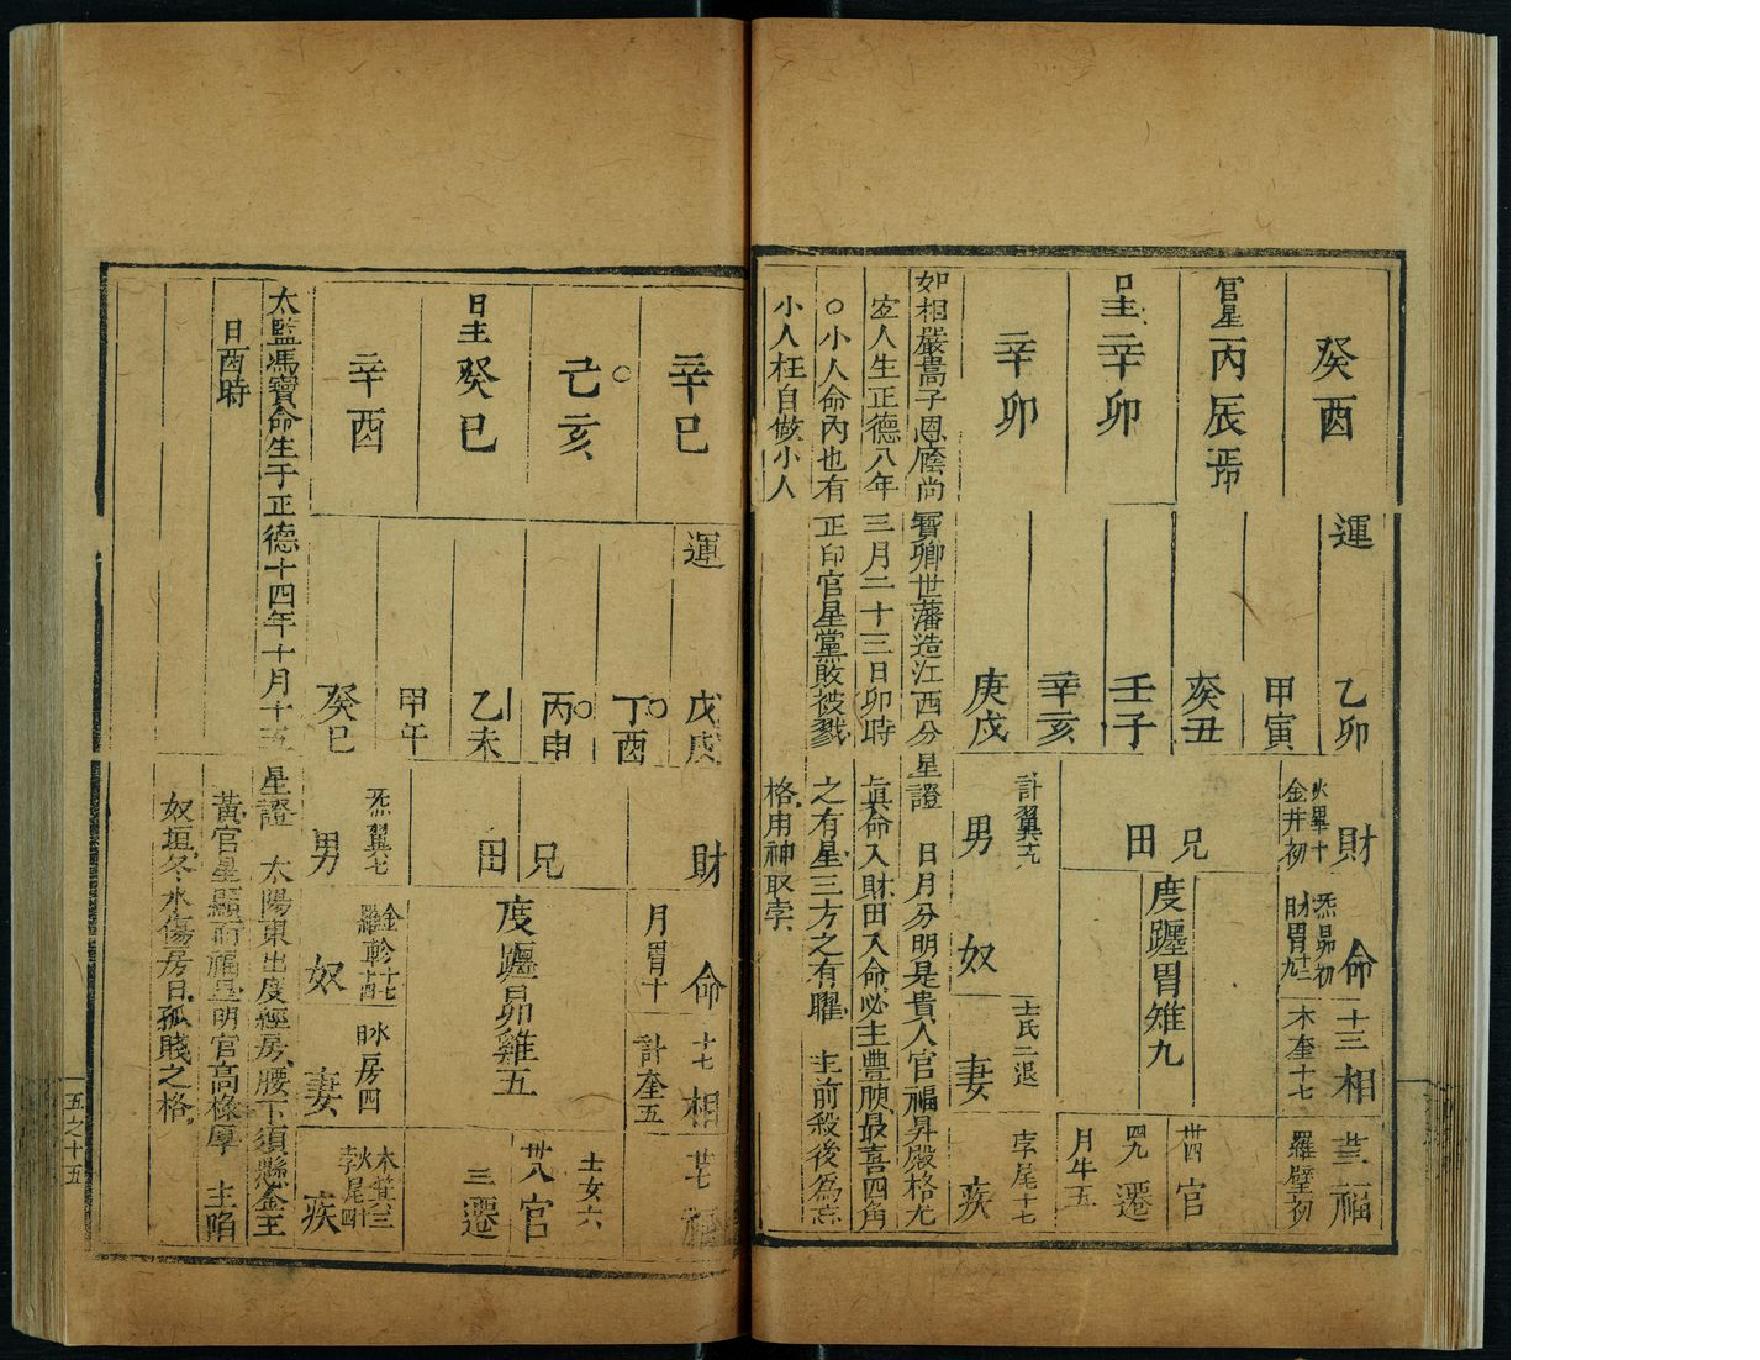 癸酉
官星丙辰正印
日主辛卯
辛卯
運
乙卯
甲寅
癸丑
壬子
辛亥
庚戌
財
火畢十
金井初
命
炁昴初
財胃十二
九
十三相
木奎十七
福
羅壁初
兄
田
度躔胃雉九
卌四官
四九遷
月牛五
計翼十九
男
奴
土氐二退
妻
孛尾十七
疾
如相嚴嵩子恩廕尚寶卿世藩造江西分
宜人生正德八年三月二十三日卯時
○小人命內也有正印官星黨敗被戮
小人枉自做小人
星證 日月分明是貴人官福昇殿格尤
眞命入財田入命必主豊𦣞最喜四角
之有星三方之有曜 生前殺後爲忌
格用神取孛
辛巳
己亥
日主癸巳
辛酉
運
戊戌
丁酉
丙申
乙未
甲午
癸巳
財
命
月胃十
十七相
計奎五
福
兄
田
度躔昴雞五
土女六
卅八官
三遷
炁翼七
男
金軫十七
羅軫十四
奴
水房四
日
妻
木箕三
火尾十四
孛
疾
太監馮寶命生于正德十四年十月十五
日酉時
星證 太陽東出度經房腰下須懸金玉
黃官星顯而福星明官高祿厚 主陷
奴垣冬水傷房日孤賤之格
五之十五